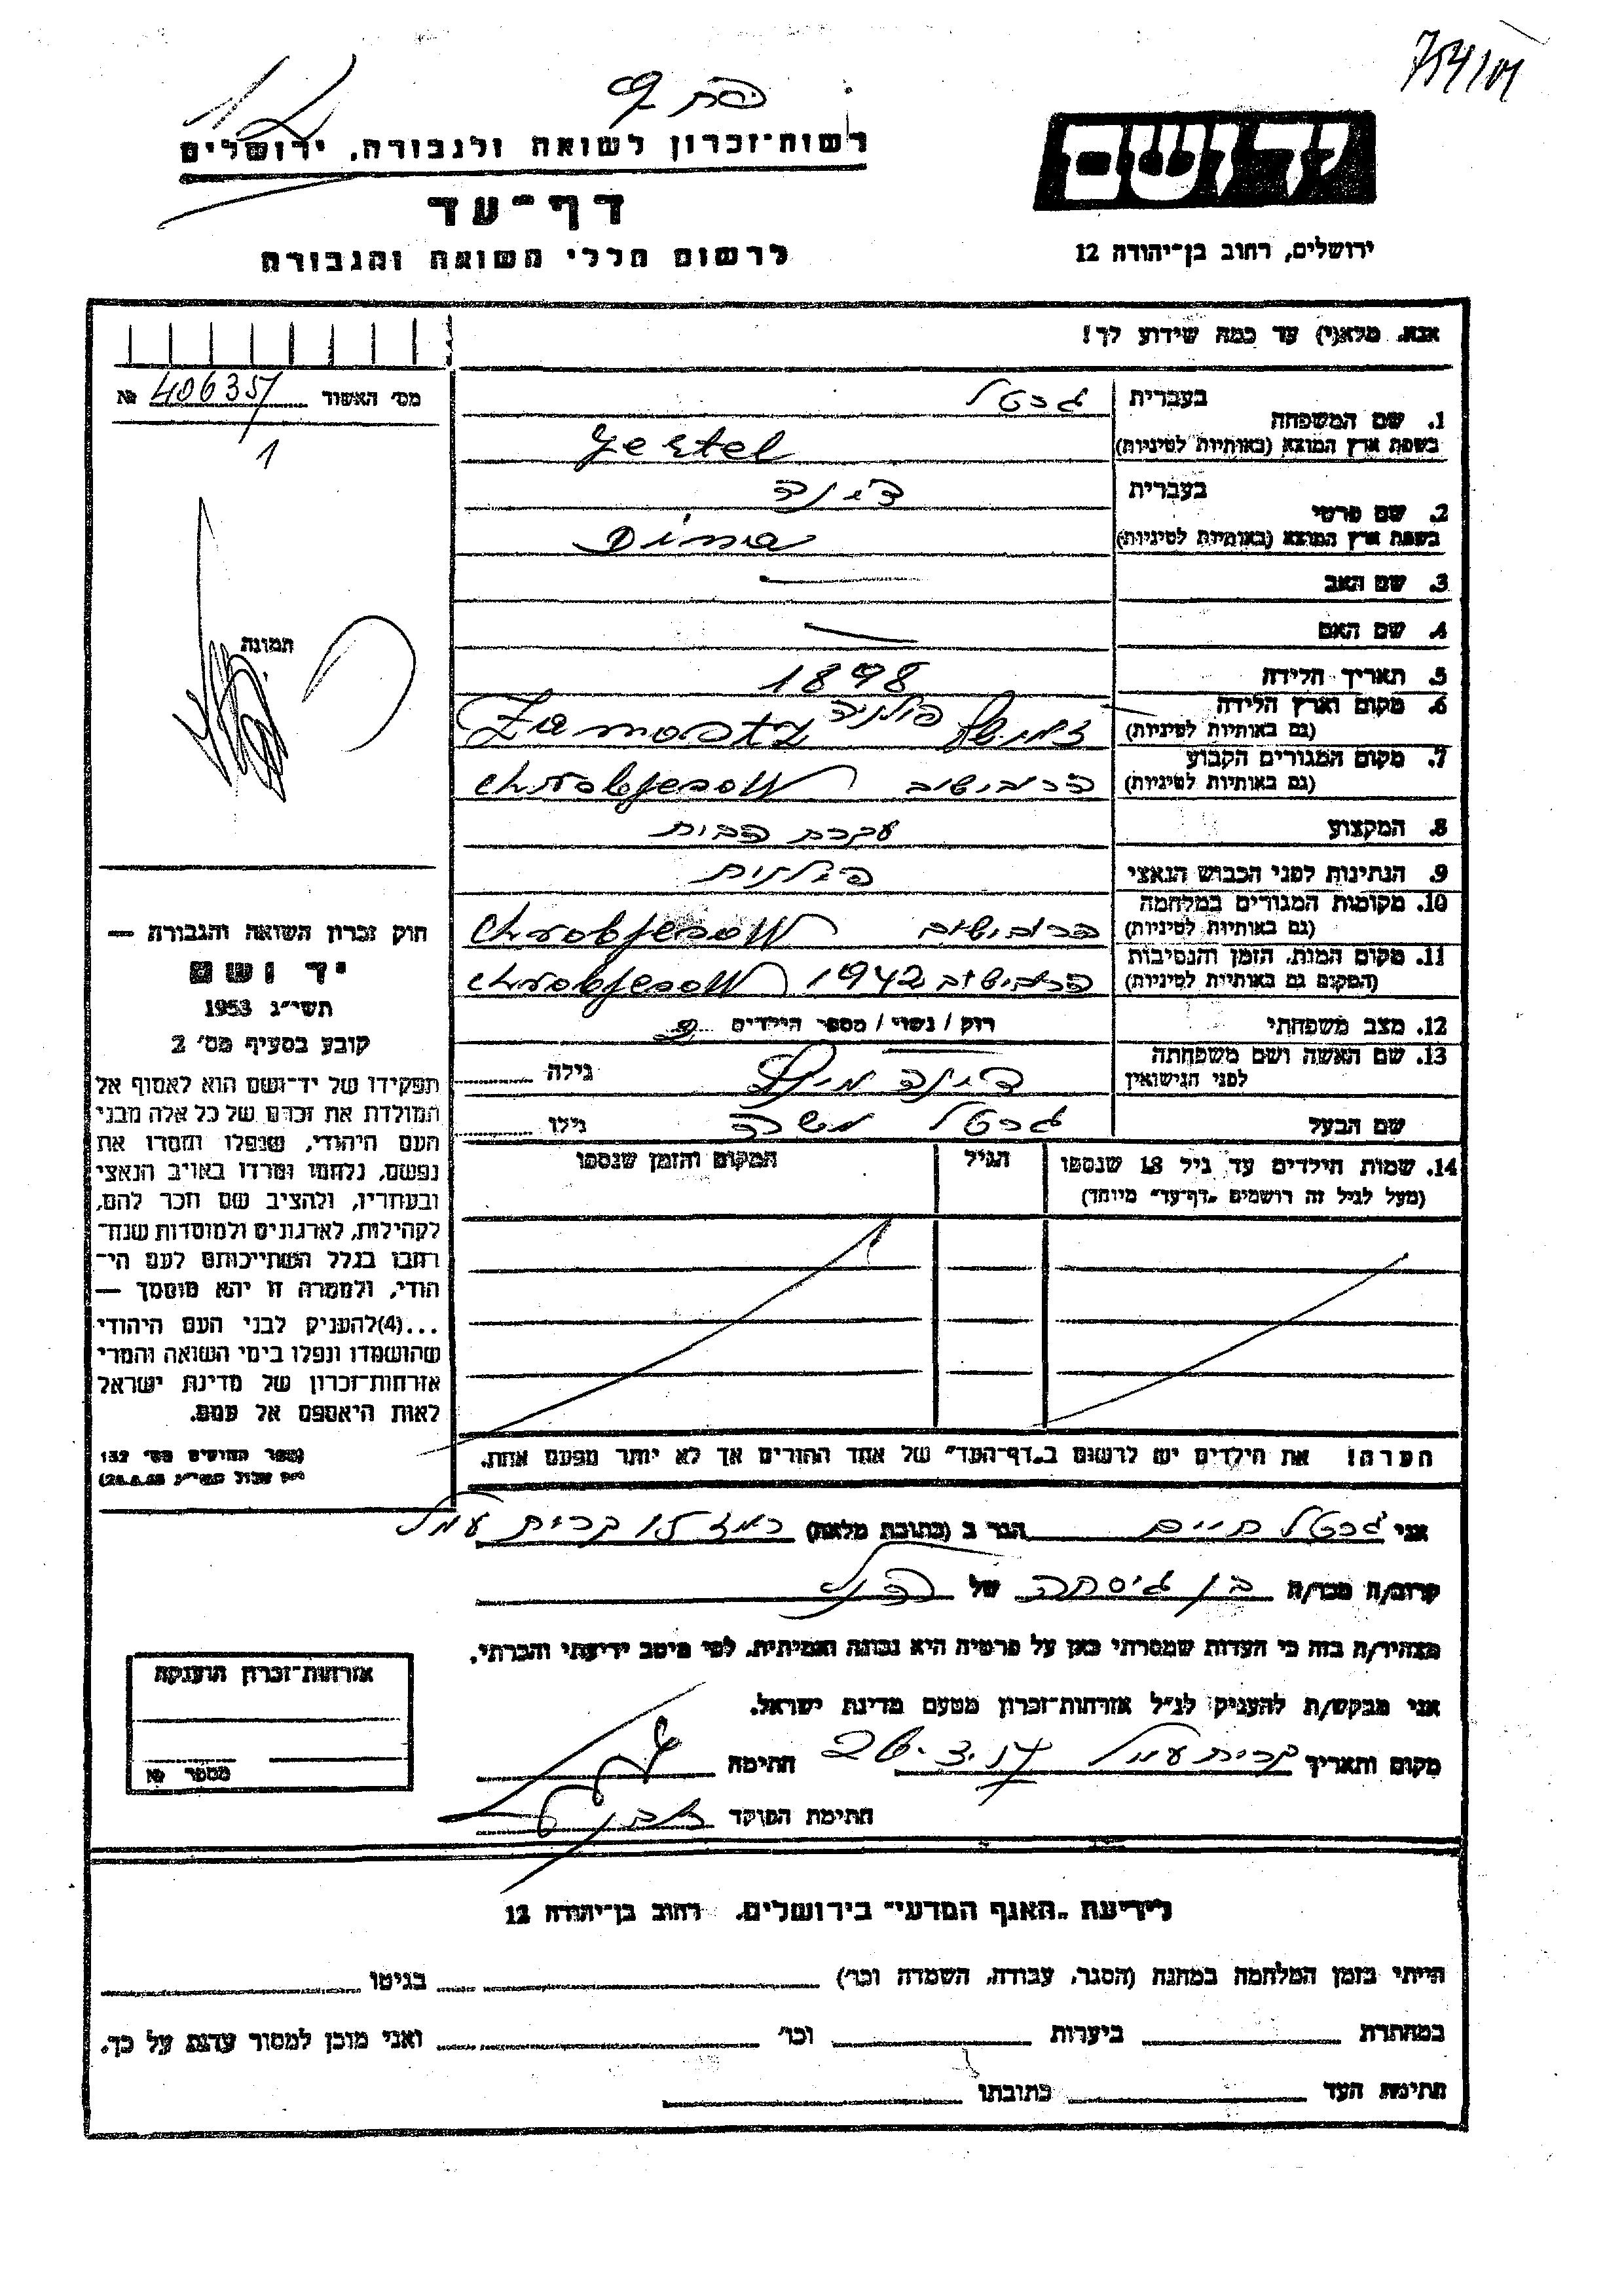 754/01
יד ושם
ירושלים, רחוב בן־יהודה 12
רשות־זכרון לשואה ולגבורה, ירושלים
דף־עד
לרשום חללי השואה והגבורה
אנא, מלא(י) עד כמה שידוע לך!
מס׳ האשור № 406357
1
תמונה
1. שם המשפחה
בעברית גרטל
בשפת ארץ המוצא (באותיות לטיניות) Gertel
2. שם פרטי
בעברית דינה
בשפת ארץ המוצא (באותיות לטיניות) Dina
3. שם האב —
4. שם האם —
5. תאריך הלידה 1898
6. מקום וארץ הלידה
(גם באותיות לטיניות) זמושץ פולניה Zamostz
7. מקום המגורים הקבוע
(גם באותיות לטיניות) הרובישוב Chrobjesow
8. המקצוע עקרת הבית
9. הנתינות לפני הכבוש הנאצי פולנית
10. מקומות המגורים במלחמה
(גם באותיות לטיניות) הרובישוב Chrobjesow
11. מקום המות, הזמן והנסיבות
(המקום גם באותיות לטיניות) הרובישוב 1942 Chrobjesow
12. מצב משפחתי רוק / נשוי / מספר הילדים 2
13. שם האשה ושם משפחתה
לפני הנישואין דינה גילה
שם הבעל גרטל משה גילו
14. שמות הילדים עד גיל 18 שנספו
(מעל לגיל זה רושמים „דף־עד״ מיוחד)
הגיל
המקום והזמן שנספו
הערה! את הילדים יש לרשום ב„דף־העד״ של אחד ההורים אך לא יותר מפעם אחת.
חוק זכרון השואה והגבורה —
יד ושם
תשי״ג 1953
קובע בסעיף מס׳ 2
תפקידו של יד־ושם הוא לאסוף אל
המולדת את זכרם של כל אלה מבני
העם היהודי, שנפלו ומסרו את
נפשם, נלחמו ומרדו באויב הנאצי
ובעוזריו, ולהציב שם וזכר להם,
לקהילות, לארגונים ולמוסדות שנח־
רבו בגלל השתייכותם לעם הי־
הודי, ולמטרה זו יהא מוסמך —
...(4) להעניק לבני העם היהודי
שהושמדו ונפלו בימי השואה והמרי
אזרחות־זכרון של מדינת ישראל
לאות היאספם אל עמם.
(ספר החוקים מס׳ 132
אני גרטל חיים הגר ב (כתובת מלאה) רמז 15 קרית עמל
קרוב/ה מכר/ה בן גיסתה של הנ״ל
מצהיר/ה בזה כי העדות שמסרתי כאן על פרטיה היא נכונה ואמיתית, לפי מיטב ידיעתי והכרתי.
אני מבקש/ת להעניק לנ״ל אזרחות־זכרון מטעם מדינת ישראל.
מקום ותאריך קרית עמל חתימה
חתימת הפוקד
אזרחות־זכרון הוענקה
מספר №
לידיעת „האגף המדעי״ בירושלים, רחוב בן־יהודה 12
הייתי בזמן המלחמה במחנה (הסגר, עבודה, השמדה וכו׳) בגיטו
במחתרת ביערות וכו׳ ואני מוכן למסור עדות על כך.
חתימת העד כתובתו